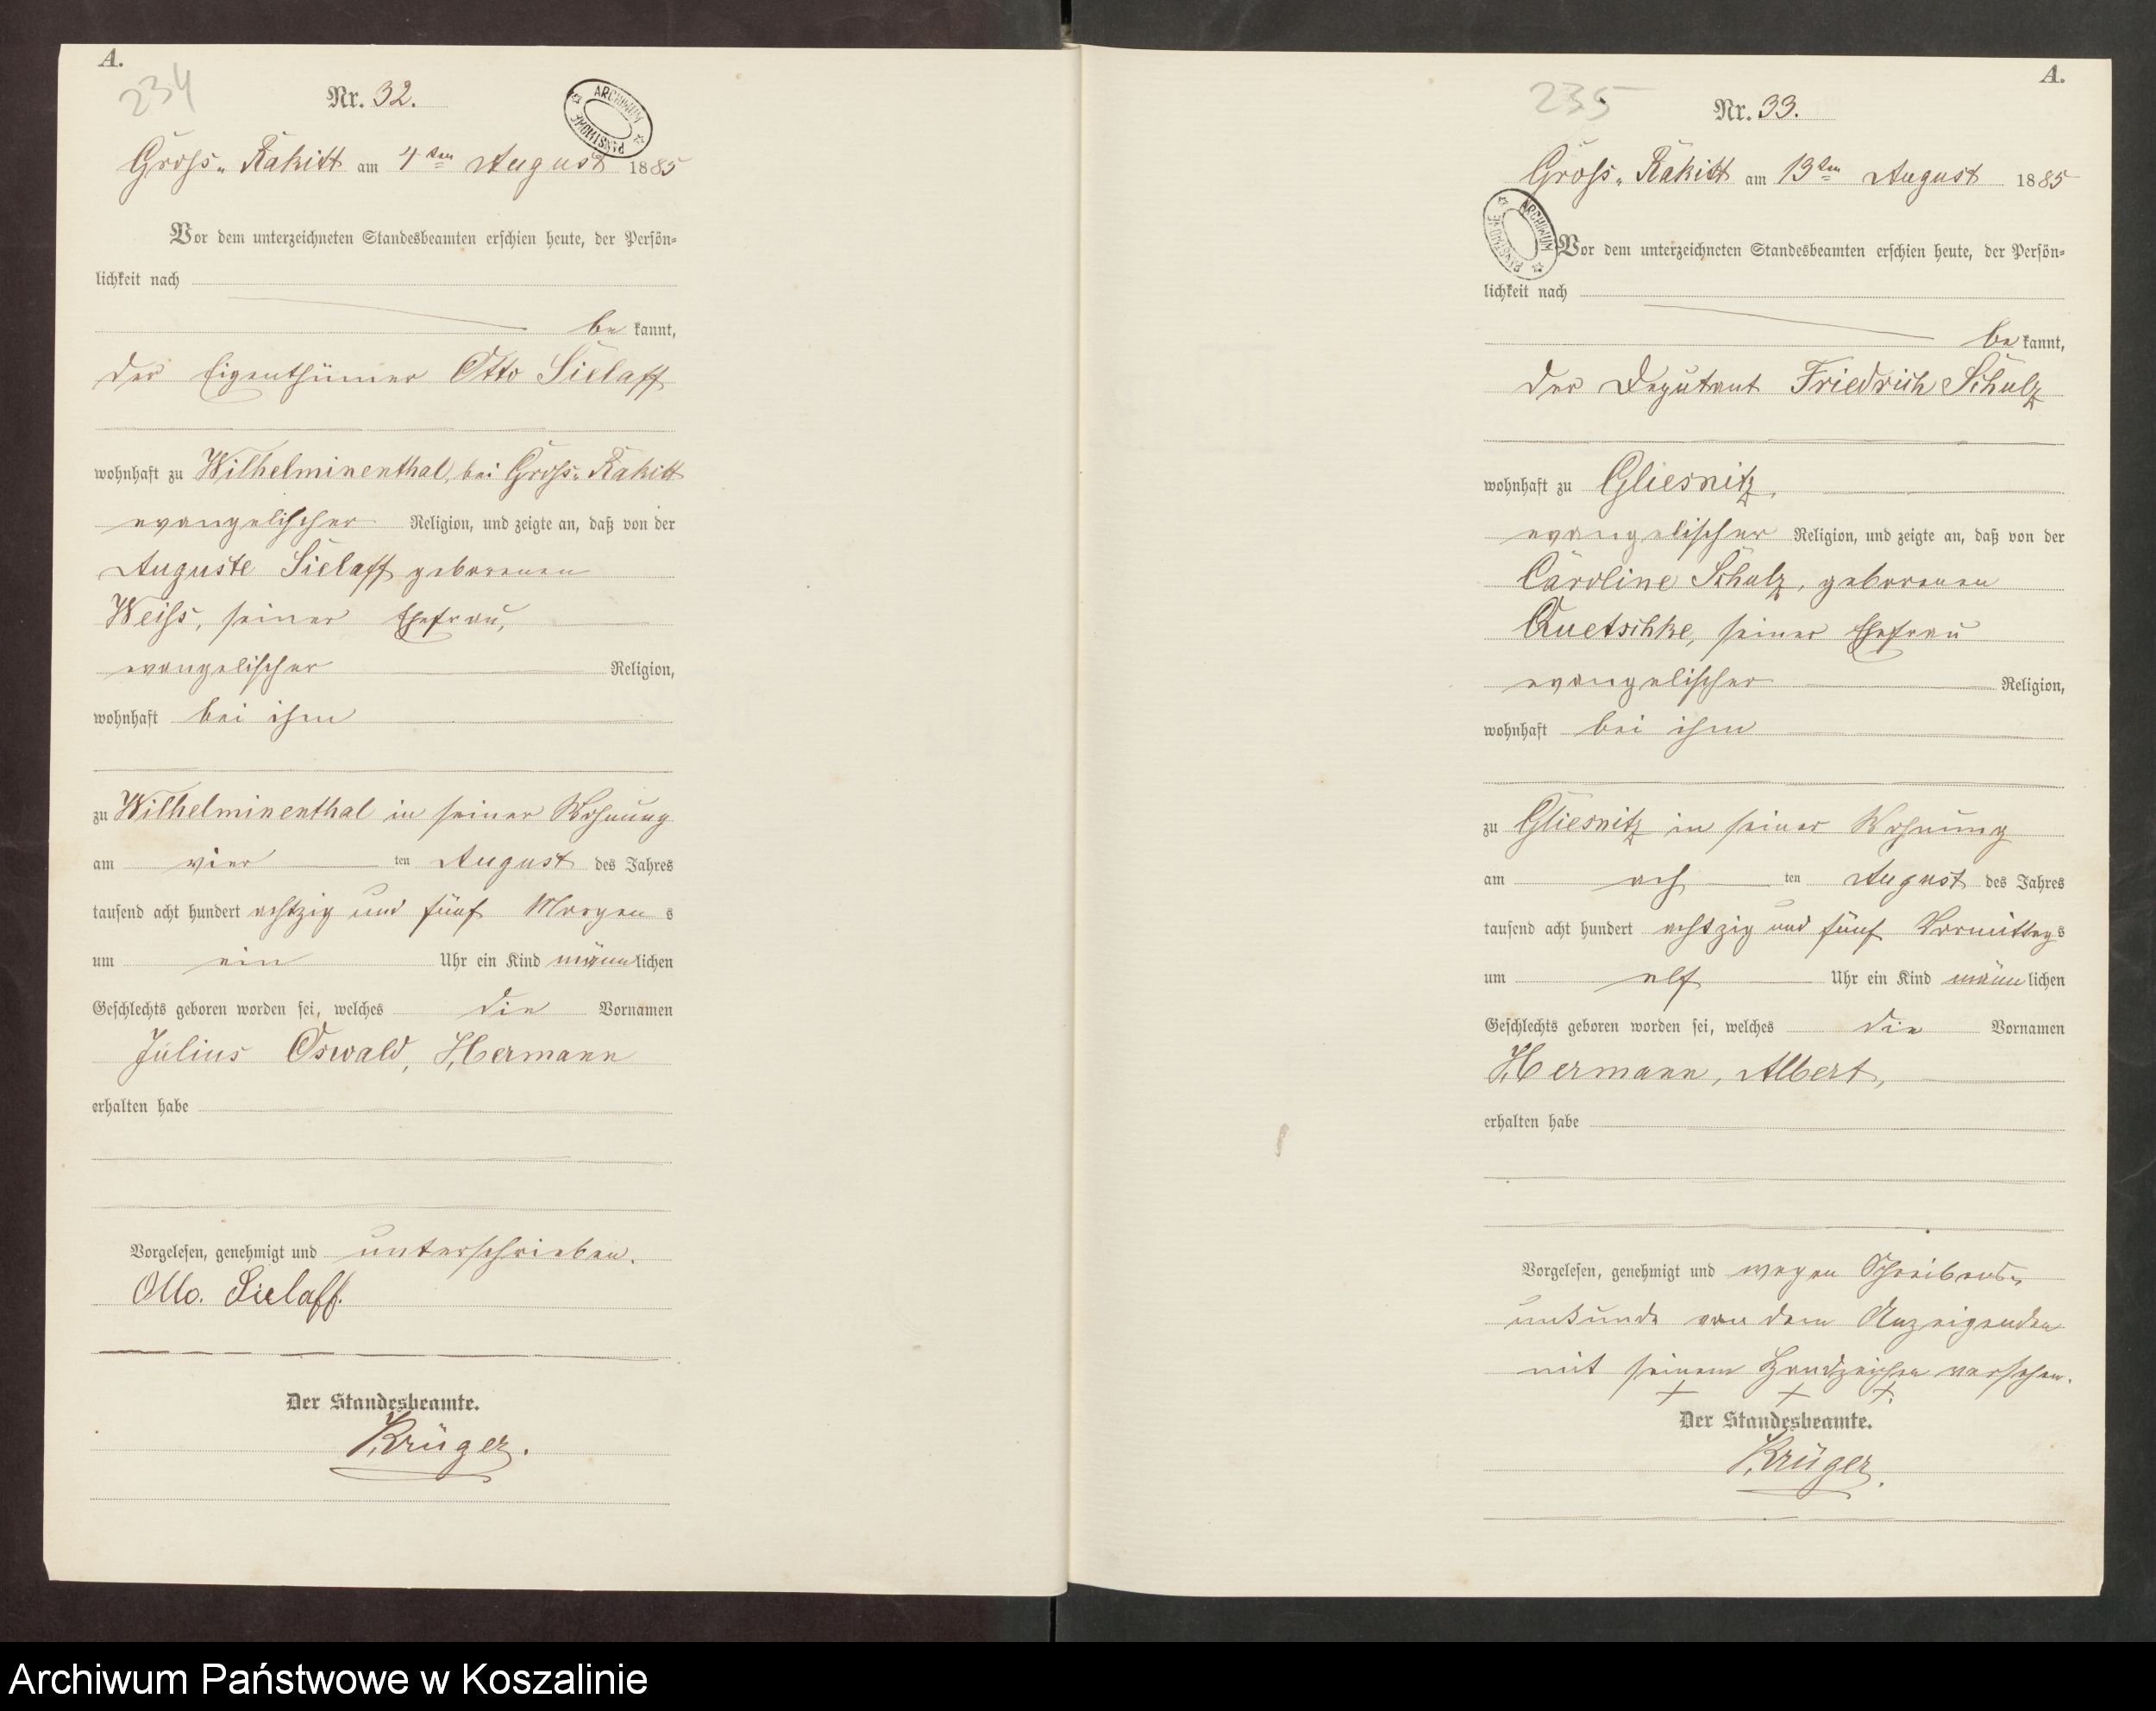 A.
234
Nr. 32.
ARCHIWUM PAŃSTWOWE
Gross-Rakitt am 4ten August 1885
Vor dem unterzeichneten Standesbeamten erschien heute, der Persön-
lichkeit nach
bekannt,
der Eigenthümer Otto Sielaff
wohnhaft zu Wilhelminenthal, bei Gross-Rakitt
evangelischer Religion, und zeigte an, daß von der
Auguste Sielaff geborenen
Weiss, seiner Ehefrau,
evangelischer Religion,
wohnhaft bei ihm
zu Wilhelminenthal in seiner Wohnung
am vier ten August des Jahres
tausend acht hundert achtzig und fünf Morgens
um ein Uhr ein Kind männlichen
Geschlechts geboren worden sei, welches die Vornamen
Julius Oswald, Hermann
erhalten habe
Vorgelesen, genehmigt und unterschrieben.
Otto. Sielaff.
Der Standesbeamte.
Krüger.
A.
235
Nr. 33.
Gross-Rakitt am 13ten August 1885
ARCHIWUM PAŃSTWOWE
Vor dem unterzeichneten Standesbeamten erschien heute, der Persön-
lichkeit nach
bekannt,
der Deputant Friedrich Schulz
wohnhaft zu Gliesnitz,
evangelischer Religion, und zeigte an, daß von der
Caroline Schulz, geborenen
Quetschke, seiner Ehefrau
evangelischer Religion,
wohnhaft bei ihm
zu Gliesnitz in seiner Wohnung
am ach ten August des Jahres
tausend acht hundert achtzig und fünf Vormittags
um elf Uhr ein Kind männlichen
Geschlechts geboren worden sei, welches die Vornamen
Hermann, Albert,
erhalten habe
Vorgelesen, genehmigt und wegen Schreibens-
unkunde von dem Anzeigenden
mit seinem Handzeichen versehen.
+ + +
Der Standesbeamte.
Krüger.
Archiwum Państwowe w Koszalinie